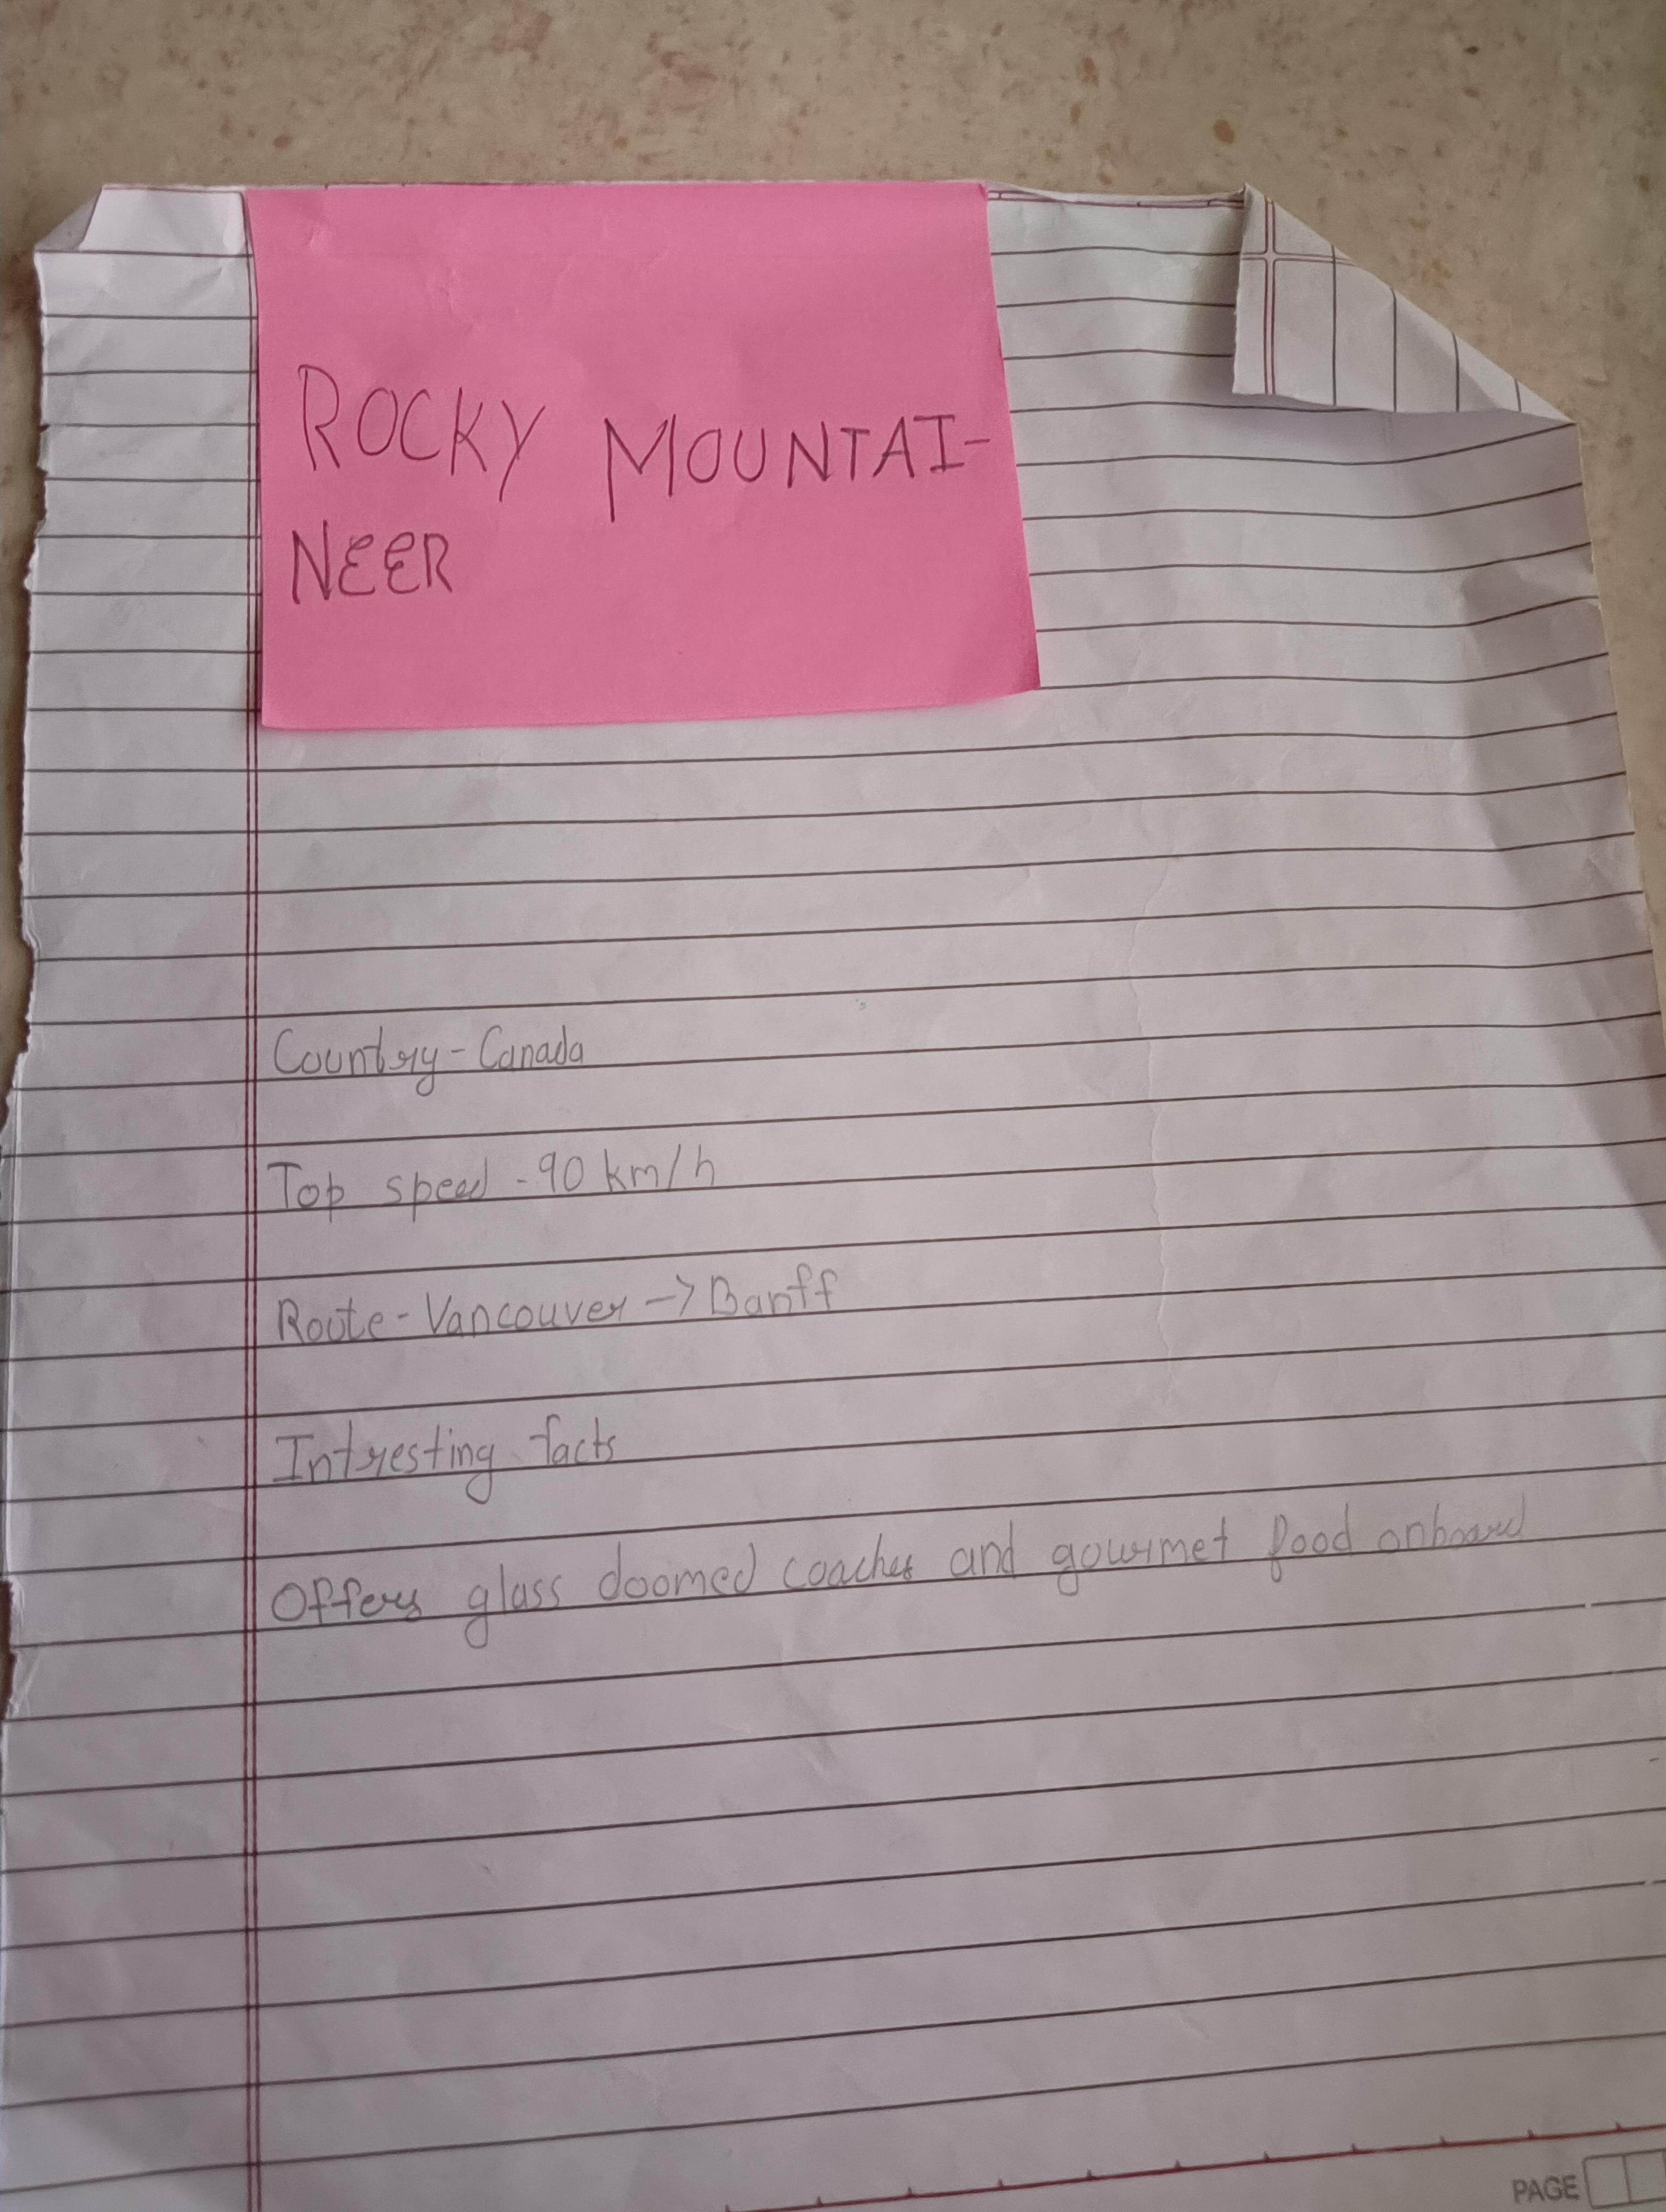 ROCKY MOUNTAI-
NEER
Country - Canada
Top speed - 90 km/h
Route - Vancouver -> Banff
Intresting facts
Offers glass doomed coaches and gourmet food onboard
PAGE